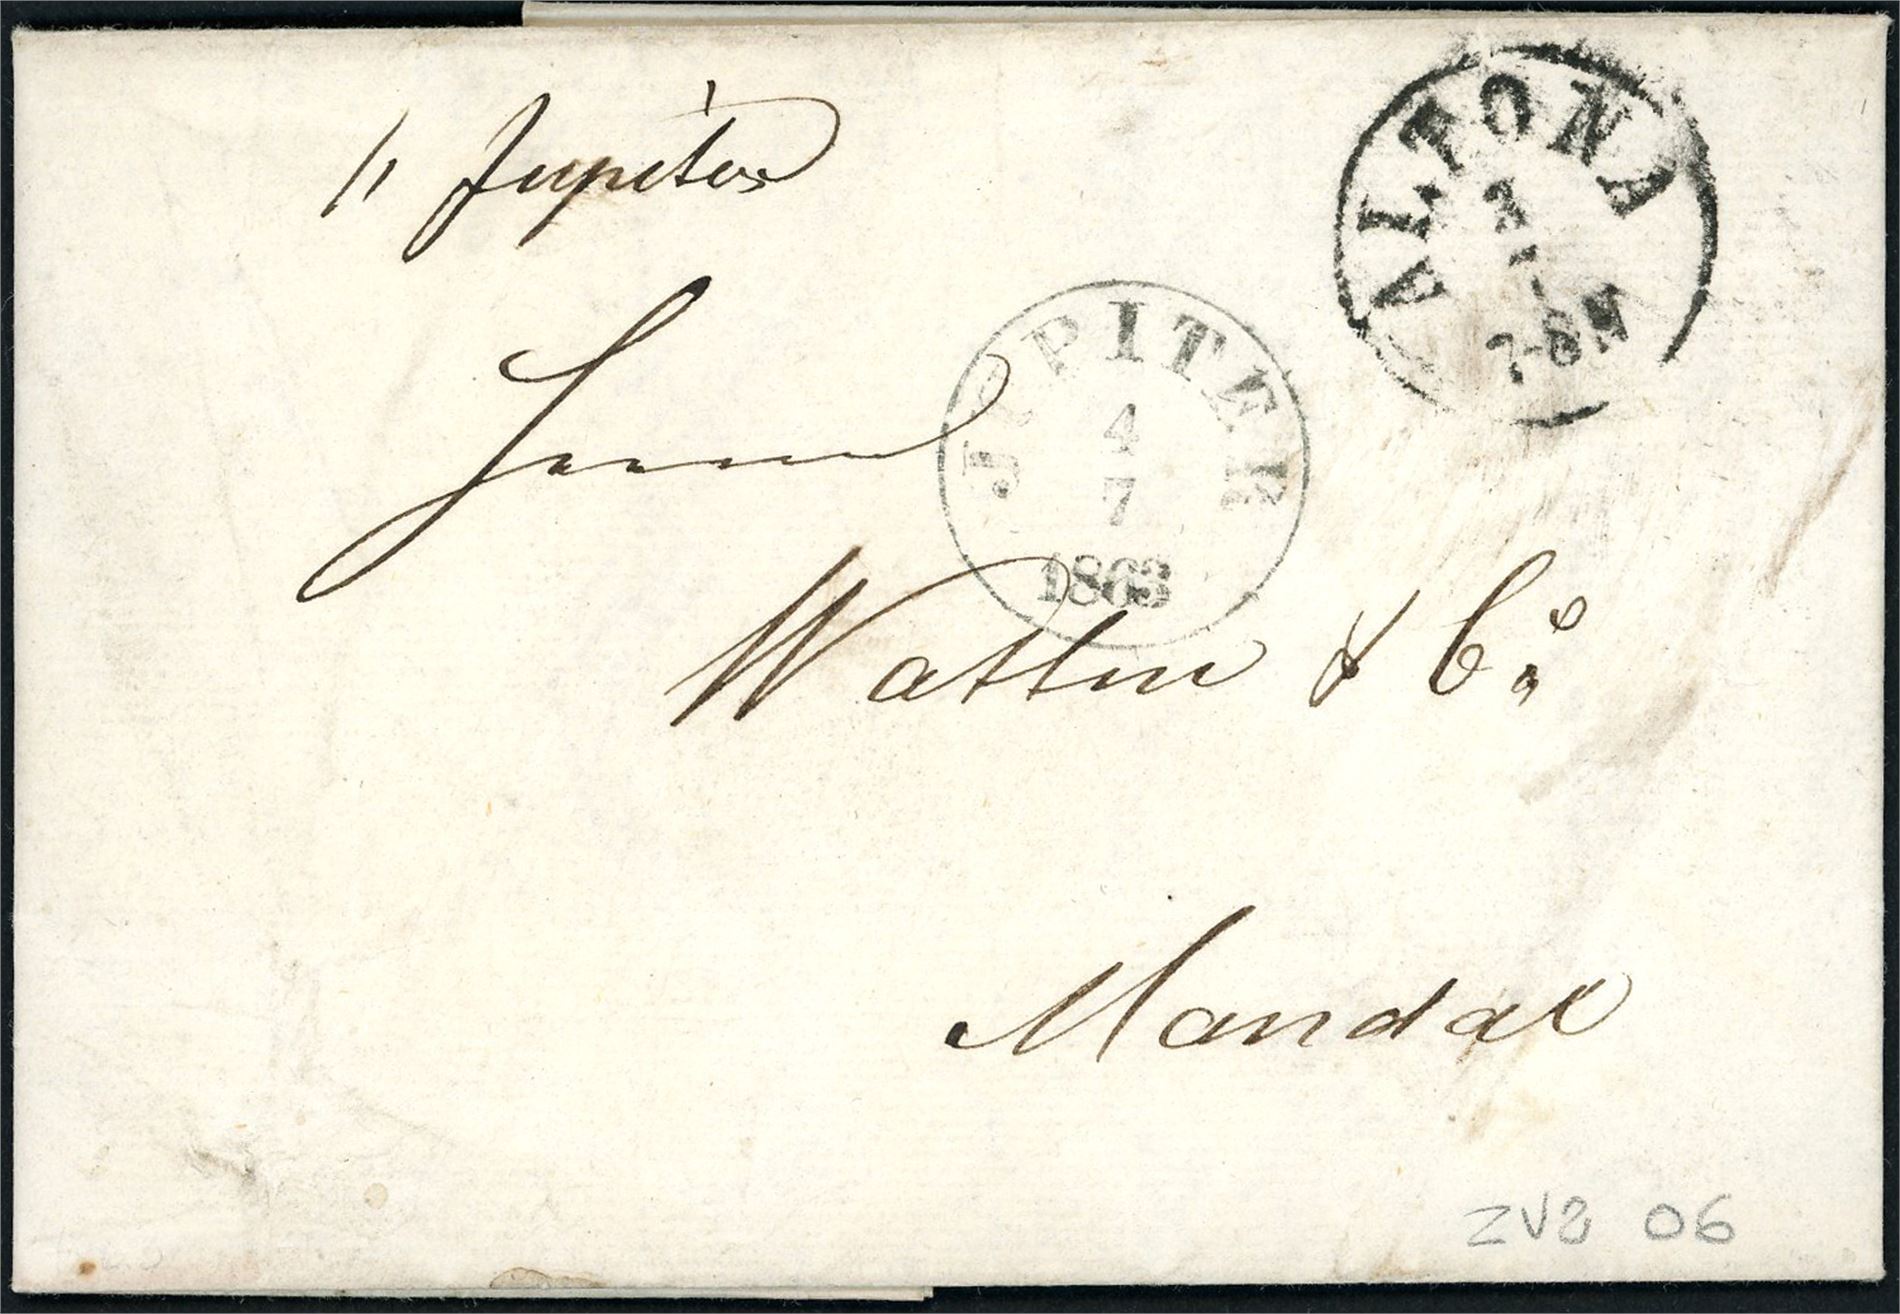 ALTONA
3
7-8N
// Jupiter
JUPITER
4
7
1863
Herrn
Watten & Co.
Mandal
ZV8 06